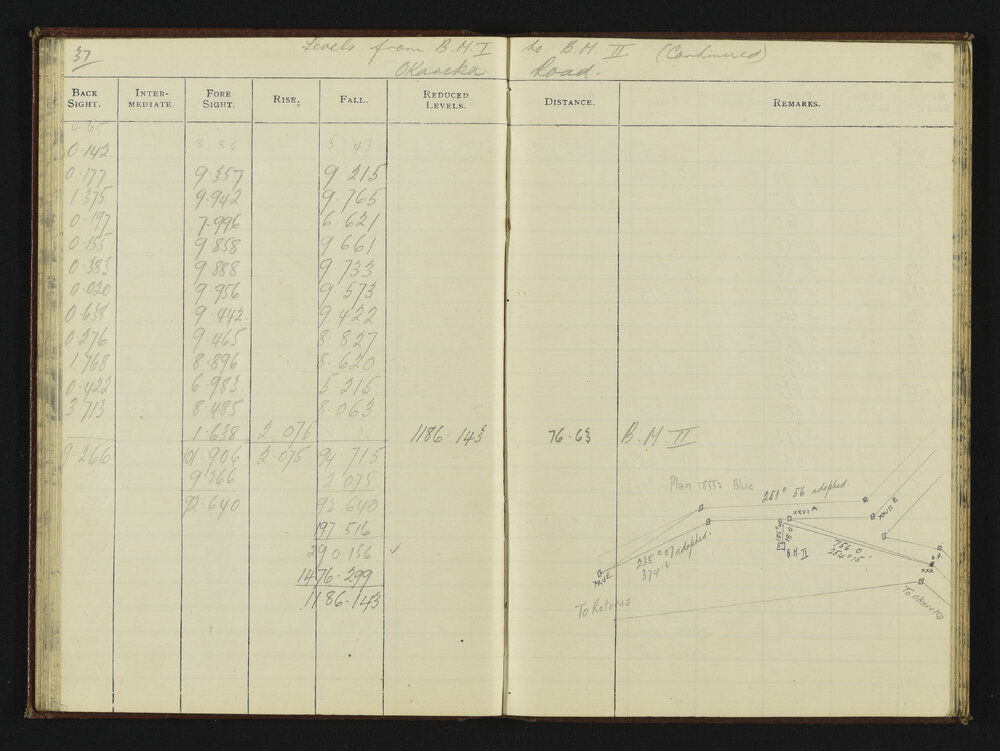 37
Levels from B.M.I to B.M. II (Continued)
Okareka Road.
BACK SIGHT. INTER-MEDIATE. FORE SIGHT. RISE. FALL. REDUCED LEVELS. DISTANCE. REMARKS.
0.142 8 86 5 43
0.177 9.357 9 215
1.375 9.942 9.765
0.197 7.996 6.621
0.155 9 858 9 661
0.383 9.888 9 733
0.020 9.956 9.573
0.638 9.442 9 422
0.276 9 465 8 827
1.768 8.896 8.620
0.422 6.983 5 215
3.713 8 485 8.063
1.638 2.075 1186.143 76.63 B.M II
9.266 01 906 2 075 94.715
9 266 2 075
92.640 92 640
197 516
290 156 ✓
1476.299
1186.143
Plan 18552 Blue
253° 56 adopted.
XXVI A
XXVII
186°00
18.0
B.M. II
235°07 adopted.
374.3
756.0
254°15
XXVE
XXX
To Rotorua
To Okareka